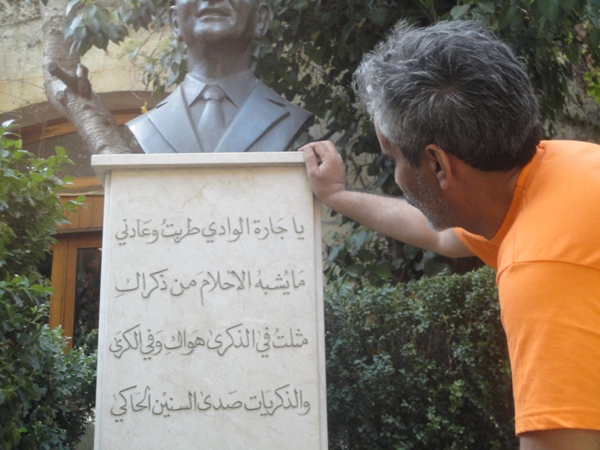 يا جَارة الوَادي طربتُ وعَادَني
مَا يشبهُ الاحلامَ مَن ذكراكِ
مثلتُ في الذكرىٰ هَواكِ وَفي الكرىٰ
والذكريَات صَدىٰ السنيْن الحَاكي